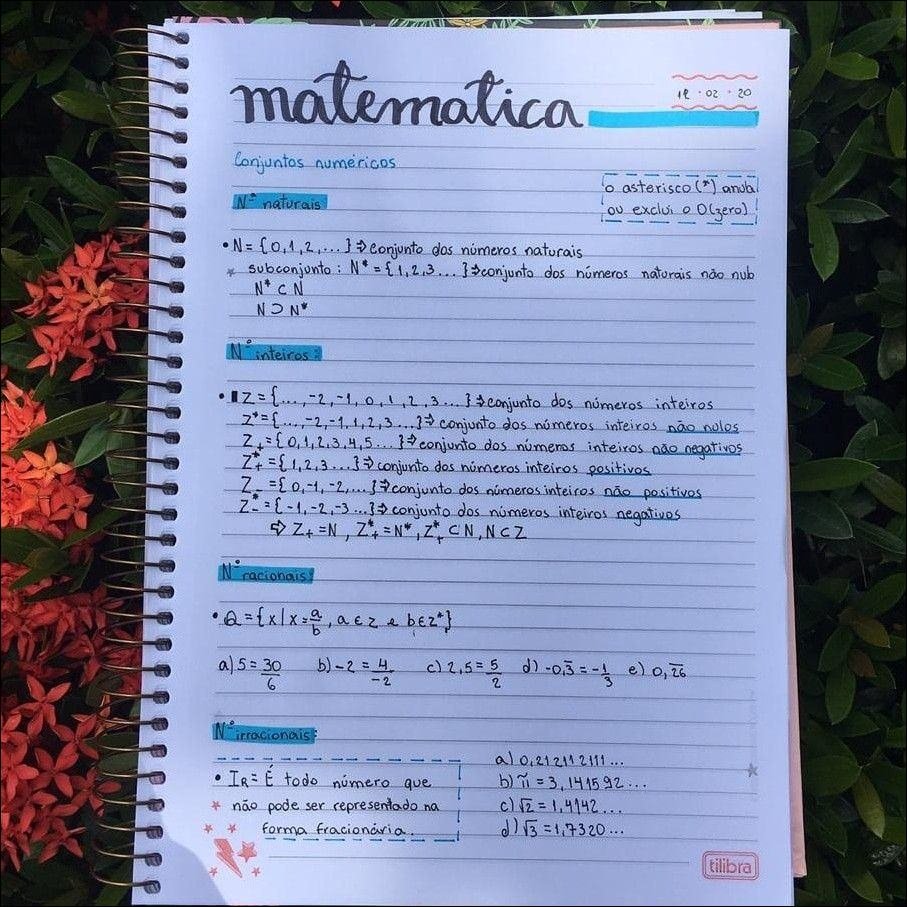 matematica
12 · 02 · 20
Conjuntos numéricos
o asterisco (*) anula
ou exclui o 0 (zero)
Nº naturais
• N = {0, 1, 2, ...} ⇒ conjunto dos números naturais
* subconjunto: N* = {1, 2, 3 ...} ⇒ conjunto dos números naturais não nulo
N* ⊂ N
N ⊃ N*
Nº inteiros:
• Z = {..., -2, -1, 0, 1, 2, 3 ...} ⇒ conjunto dos números inteiros
Z* = {..., -2, -1, 1, 2, 3 ...} ⇒ conjunto dos números inteiros não nulos
Z₊ = {0, 1, 2, 3, 4, 5 ...} ⇒ conjunto dos números inteiros não negativos
Z*₊ = {1, 2, 3 ...} ⇒ conjunto dos números inteiros positivos
Z₋ = {0, -1, -2, ...} ⇒ conjunto dos números inteiros não positivos
Z*₋ = {-1, -2, -3 ...} ⇒ conjunto dos números inteiros negativos
⇨ Z₊ = N, Z*₊ = N*, Z*₊ ⊂ N, N ⊂ Z
Nº racionais:
• Q = {x | x = a/b, a ∈ z e b ∈ z*}
a) 5 = 30/6 b) -2 = 4/-2 c) 2,5 = 5/2 d) -0,3̅ = -1/3 e) 0,2̅6̅
Nº irracionais:
• Iʀ = É todo número que
* não pode ser representado na
forma fracionária.
a) 0,212112111...
b) π = 3,141592...
c) √2 = 1,4142...
d) √3 = 1,7320...
tilibra